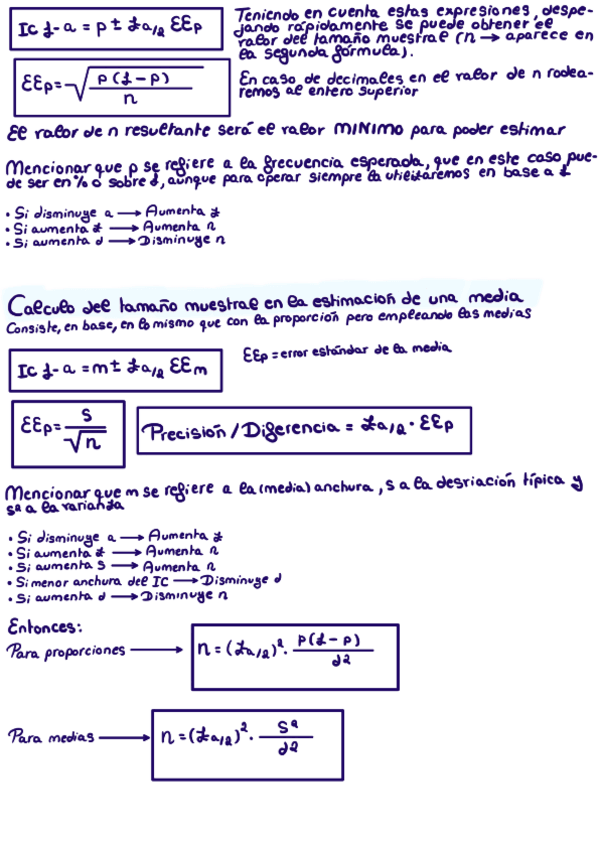 IC 1-α = p ± Zα/2 EEp
Teniendo en cuenta estas expresiones, despe-
jando rápidamente se puede obtener el
valor del tamaño muestral (n → aparece en
la segunda fórmula).
EEp = √(p(1-p)/n)
En caso de decimales en el valor de n rodea-
remos al entero superior
El valor de n resultante será el valor MINIMO para poder estimar
Mencionar que p se refiere a la frecuencia esperada, que en este caso pue-
de ser en % o sobre 1, aunque para operar siempre la utilizaremos en base a 1
• Si disminuye α → Aumenta Z
• Si aumenta Z → Aumenta n
• Si aumenta d → Disminuye n
Calculo del tamaño muestral en la estimación de una media
Consiste, en base, en lo mismo que con la proporción pero empleando las medias
IC 1-α = m ± Zα/2 EEm
EEp = error estándar de la media
EEp = S/√n
Precisión / Diferencia = Zα/2 · EEp
Mencionar que m se refiere a la (media) anchura, s a la desviación típica y
s² a la varianda
• Si disminuye α → Aumenta Z
• Si aumenta Z → Aumenta n
• Si aumenta S → Aumenta n
• Si menor anchura del IC → Disminuye d
• Si aumenta d → Disminuye n
Entonces:
Para proporciones → n = (Zα/2)² · p(1-p)/d²
Para medias → n = (Zα/2)² · S²/d²